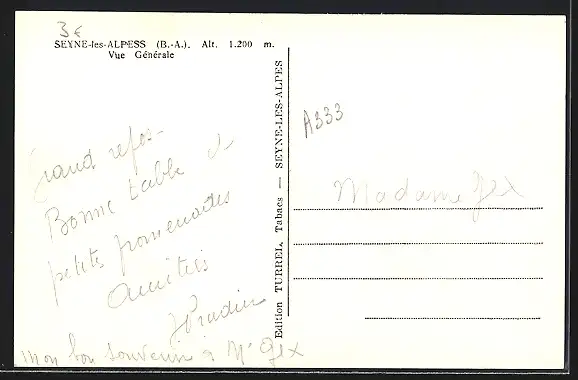 3€
SEYNE-les-ALPESS (B.-A.). Alt. 1.200 m.
Vue Générale
Grand repos
Bonne table et
petites promenades
Amitiés
Mon bon souvenir à Mr Gex
Edition TURREL, Tabacs — SEYNE-LES-ALPES
A333
Madame Gex